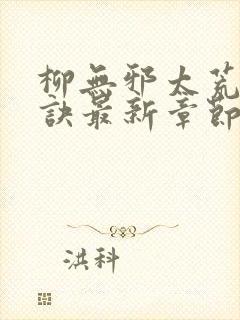 柳無邪太荒
訣最新章節
洪科